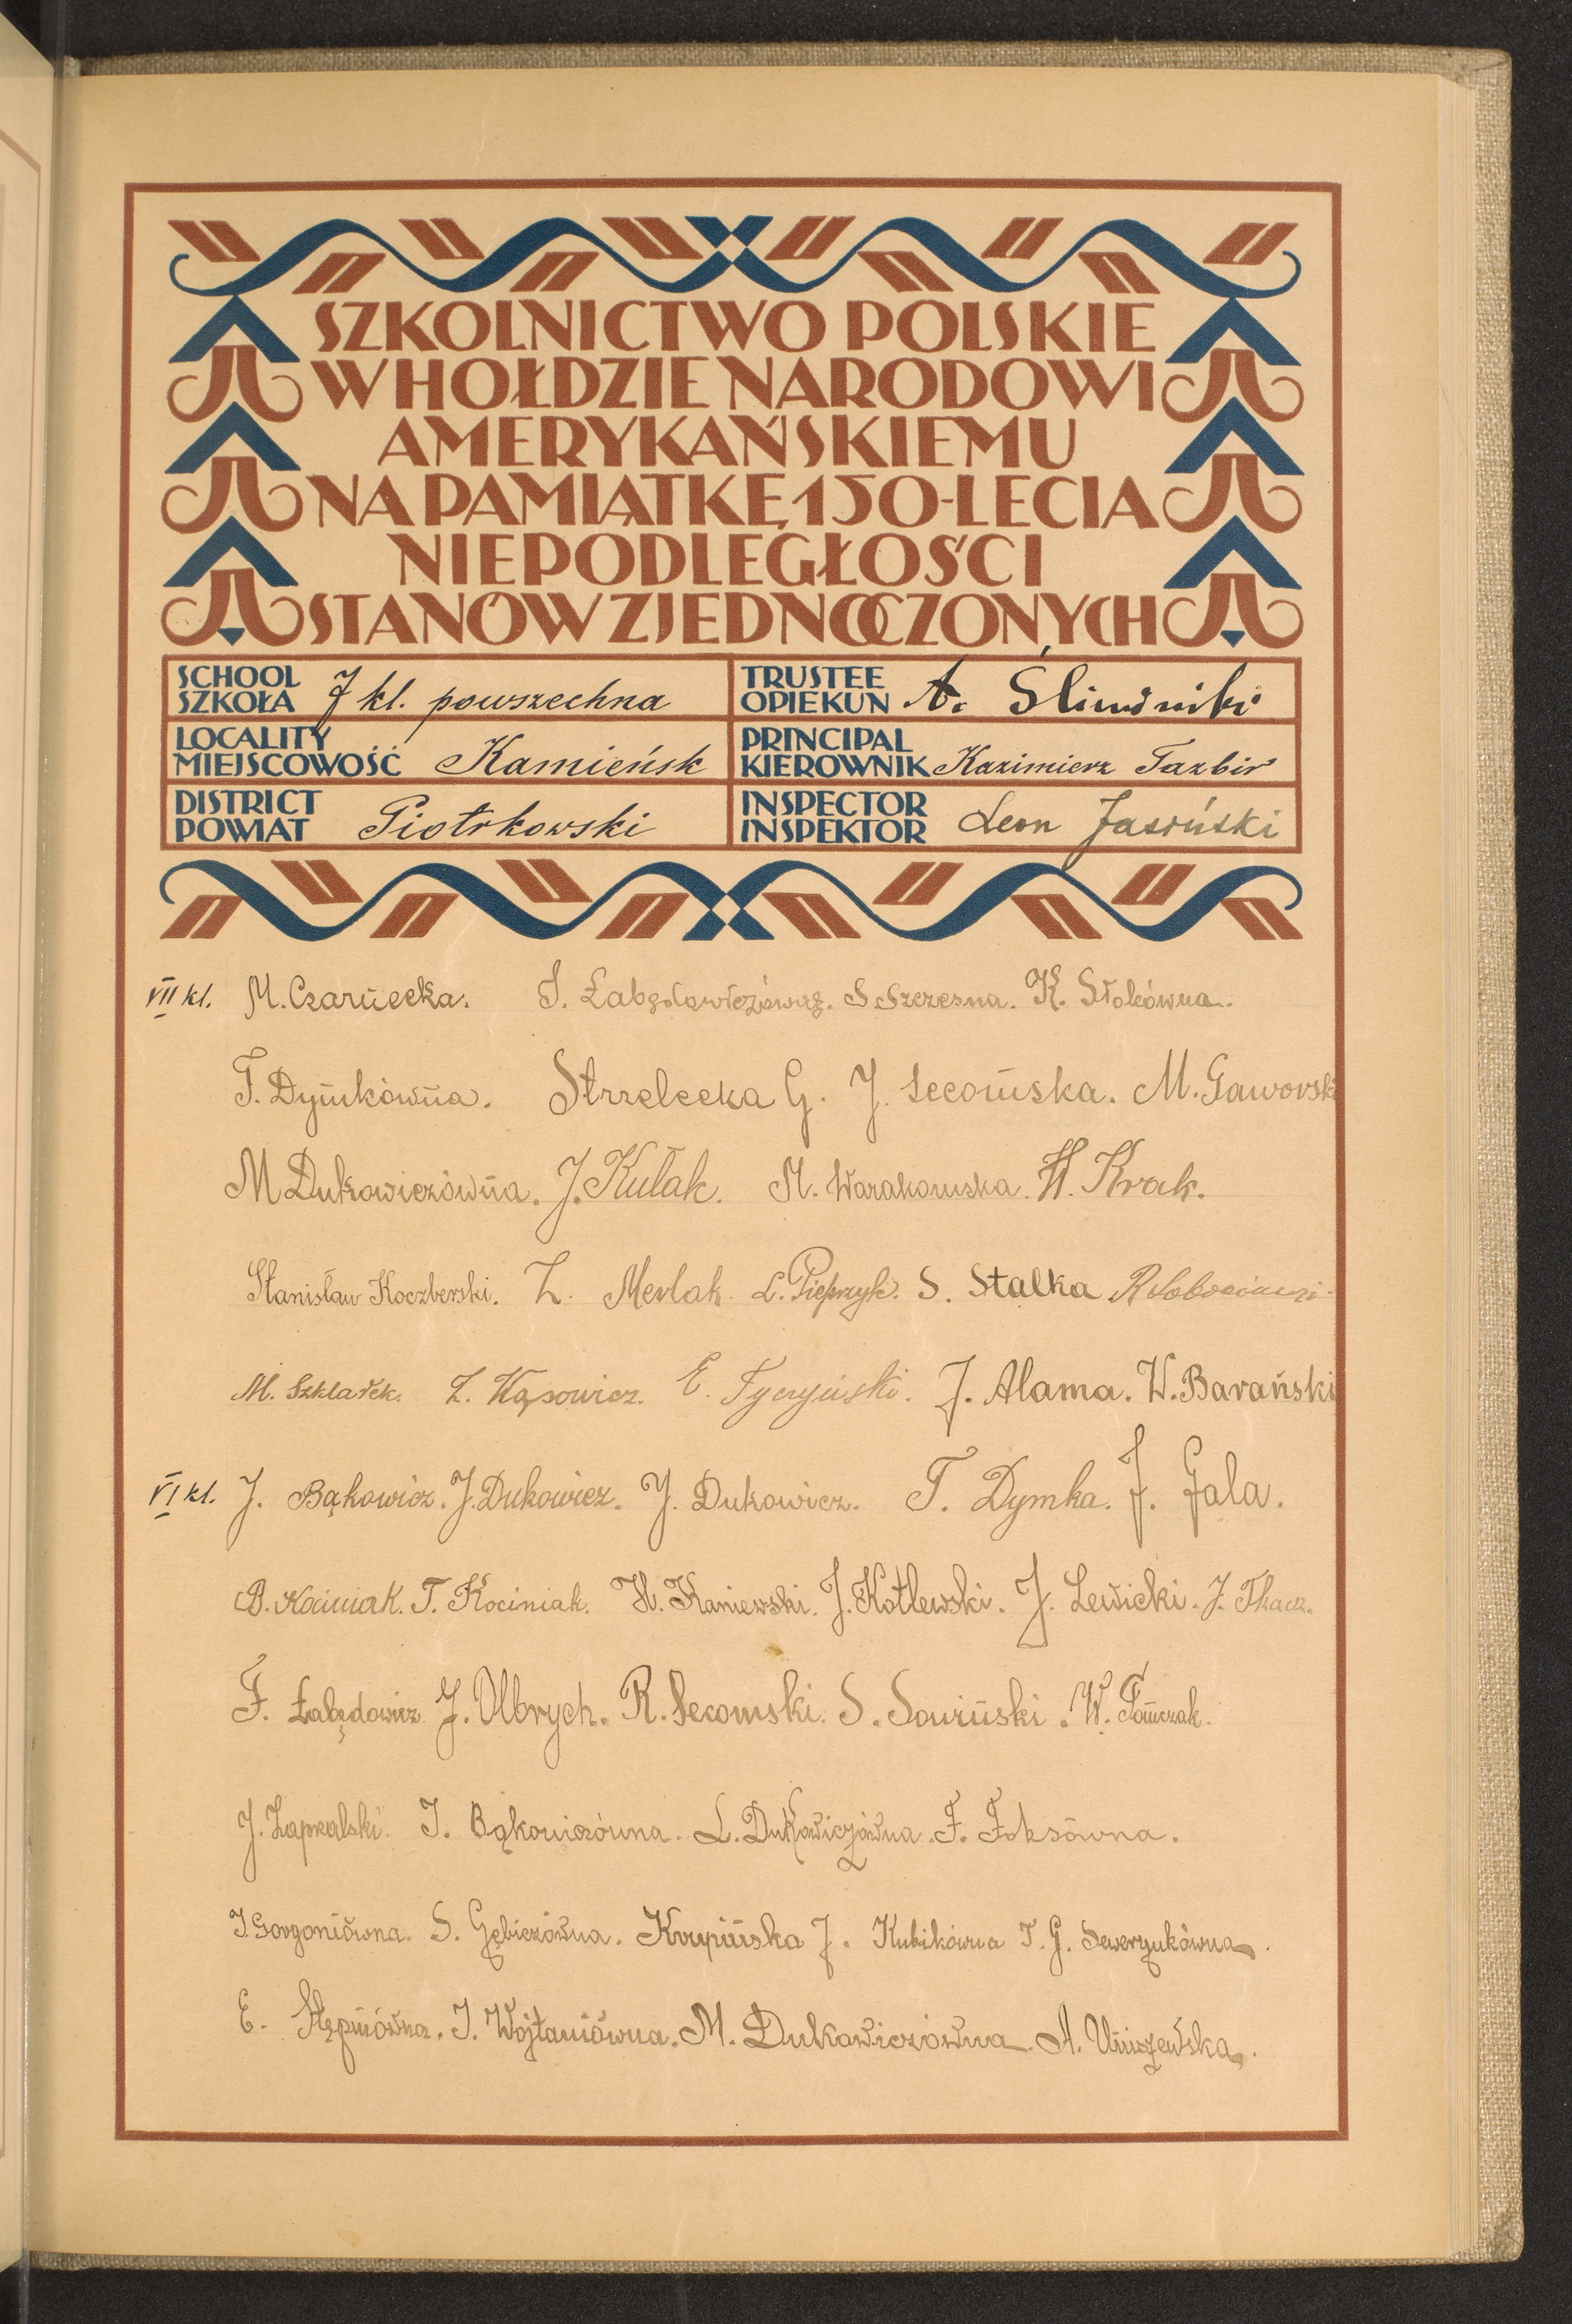 SZKOLNICTWO POLSKIE
W HOŁDZIE NARODOWI
AMERYKAŃSKIEMU
NA PAMIĄTKĘ 150-LECIA
NIEPODLEGŁOŚCI
STANÓW ZJEDNOCZONYCH
SCHOOL
SZKOŁA 7 kl. powszechna
TRUSTEE
OPIEKUN A.
LOCALITY
MIEJSCOWOŚĆ Kamieńsk
PRINCIPAL
KIEROWNIK Kazimierz Tazbir
DISTRICT
POWIAT Piotrkowski
INSPECTOR
INSPEKTOR Leon Jasiński
VII kl. M. Czarnecka. S. Szczesna. K. Słokówna.
T. Dymkówna. Strzelecka G. J. Secomska. M. Gaworsk
M Dukowiczówna. J. Kułak. M. Warakomska. H. Krak.
Stanisław Koczberski. Z. Merlak. L. Pieprzyk. S. Stalka
M. Szkladek. Z. Wąsowicz. E. Tyczyński. J. Alama. W. Barański
VI kl. J. Bąkowicz. J. Dukowicz. J. Dukowicz. T. Dymka. J. Gala.
B. Kociniak. T. Kociniak. W. Kaniewski. J. Kotlewski. J. Lewicki. J. Tkacz.
F. Łabędowicz J. Olbrych. R. Secomski. S. Sowiński. W. Tomczak.
J. Zaprzalski. I. Bąkowiczówna. L. Dukowiczówna. F. Foksówna.
I. Gorgoniówna. S. Gębiczówna. Krupińska J. Kubikówna T. G. Sewerynkówna.
E. Stępniówna. I. Wojtaniówna. M. Dukowiczówna. A. Uniszewska.